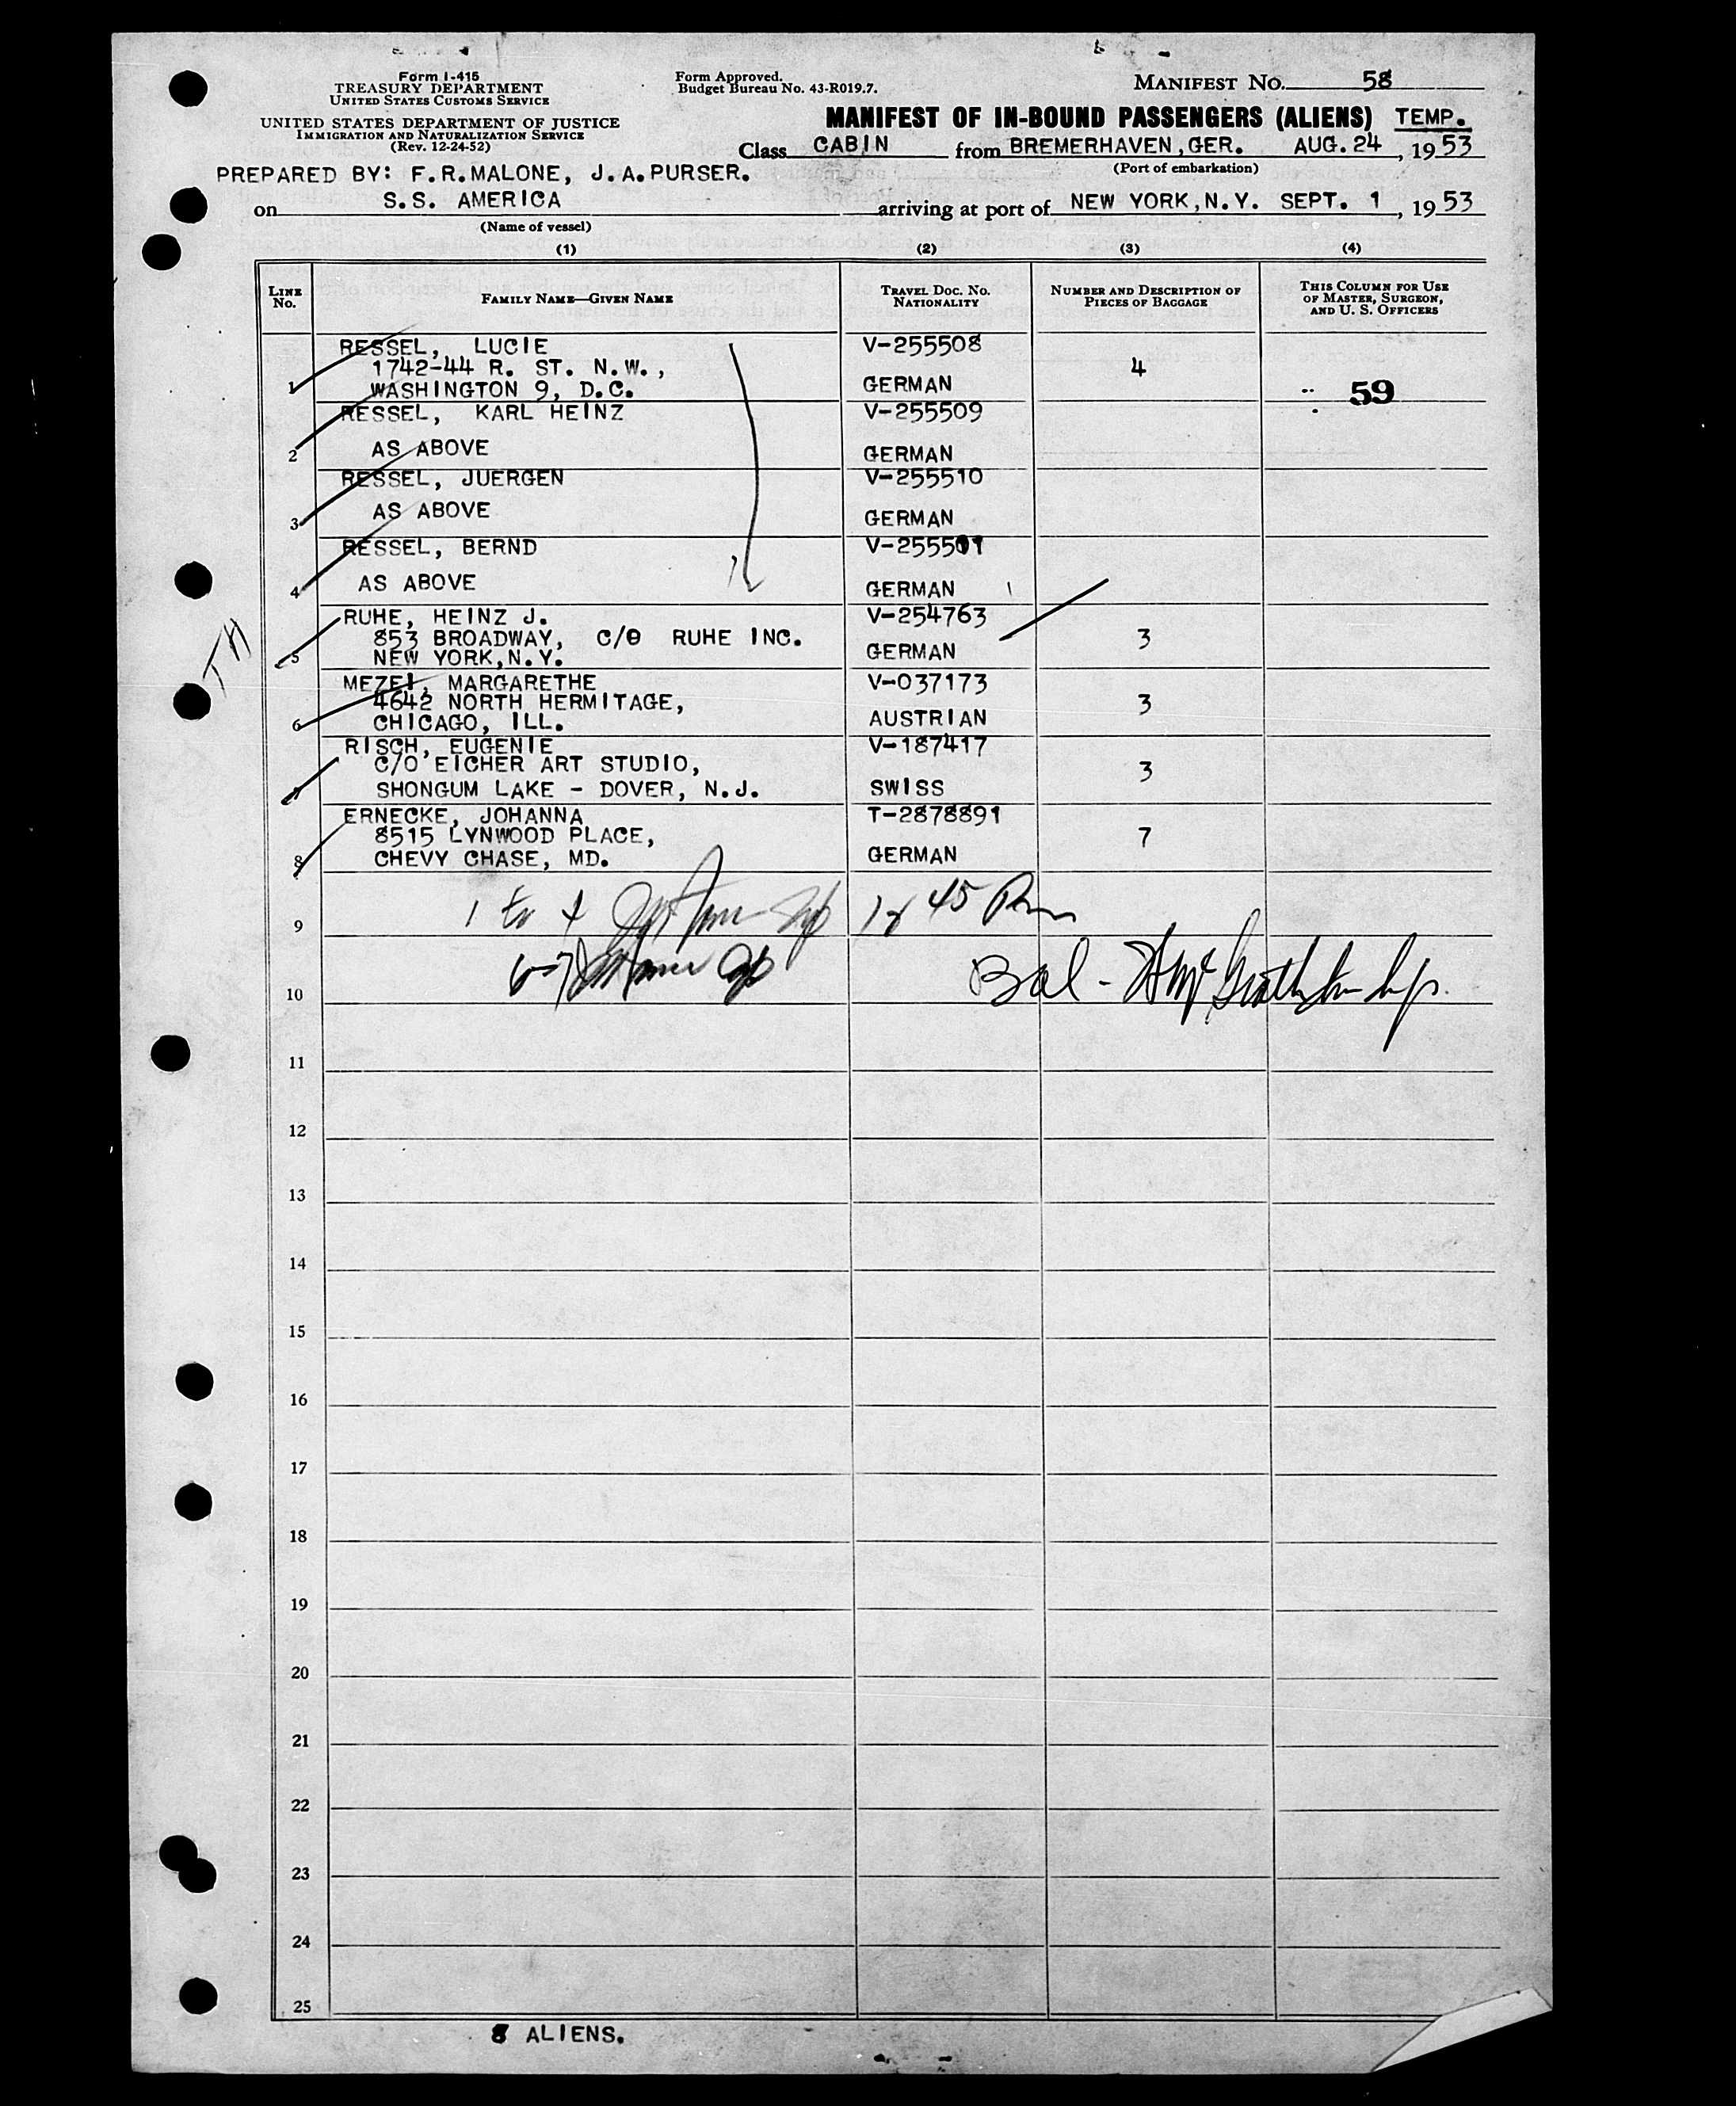 Form I-415
TREASURY DEPARTMENT
UNITED STATES CUSTOMS SERVICE
UNITED STATES DEPARTMENT OF JUSTICE
IMMIGRATION AND NATURALIZATION SERVICE
(Rev. 12-24-52)
Form Approved.
Budget Bureau No. 43-R019.7.
MANIFEST NO. 58
MANIFEST OF IN-BOUND PASSENGERS (ALIENS) TEMP.
Class CABIN from BREMERHAVEN, GER. AUG. 24, 1953
(Port of embarkation)
PREPARED BY: F.R.MALONE, J.A.PURSER.
on S.S. AMERICA arriving at port of NEW YORK, N.Y. SEPT. 1, 1953
(Name of vessel)
(1) (2) (3) (4)
LINE No. FAMILY NAME—GIVEN NAME TRAVEL DOC. NO. NATIONALITY NUMBER AND DESCRIPTION OF PIECES OF BAGGAGE THIS COLUMN FOR USE OF MASTER, SURGEON, AND U. S. OFFICERS
RESSEL, LUCIE V-255508
1742-44 R. ST. N.W., 4
1 WASHINGTON 9, D.C. GERMAN 59
RESSEL, KARL HEINZ V-255509
2 AS ABOVE GERMAN
RESSEL, JUERGEN V-255510
3 AS ABOVE GERMAN
RESSEL, BERND V-255511
4 AS ABOVE GERMAN
RUHE, HEINZ J. V-254763
853 BROADWAY, C/O RUHE INC. 3
5 NEW YORK, N.Y. GERMAN
TA
MEZEI, MARGARETHE V-037173
4642 NORTH HERMITAGE, 3
6 CHICAGO, ILL. AUSTRIAN
RISCH, EUGENIE V-187417
C/O EICHER ART STUDIO, 3
7 SHONGUM LAKE - DOVER, N.J. SWISS
ERNECKE, JOHANNA T-2878891
8515 LYNWOOD PLACE, 7
8 CHEVY CHASE, MD. GERMAN
1 to 4 45 Pm
9
6-7 Bal -
10
11
12
13
14
15
16
17
18
19
20
21
22
23
24
25
8 ALIENS.